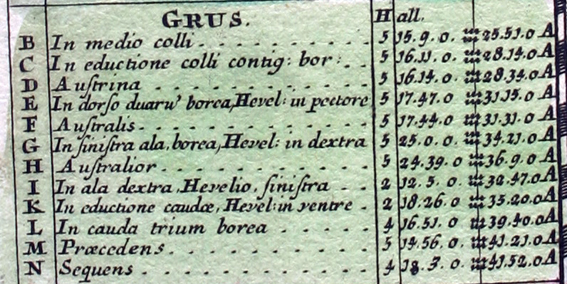 GRUS. Hall.
B In medio colli . . . . . . . 5 15. 9. 0. ♒ 25.51.0 A
C In eductione colli contig: bor: . . 5 16.11. 0. ♒ 28.14.0 A
D Auſtrina . . . . . . . . 5 16.14. 0. ♒ 28.34.0 A
E In dorſo duarū borea, Hevel: in pectore 5 17.47. 0 ♒ 31.15.0 A
F Auſtralis . . . . . . . . 5 17.44. 0 ♒ 31.31.0 A
G In ſiniſtra ala, borea, Hevel: in dextra 5 25. 0. 0. ♒ 34.21.0 A
H Auſtralior . . . . . . . . 5 24.39. 0 ♒ 36.9.0 A
I In ala dextra, Hevelio, ſiniſtra . . 2 12. 5. 0. ♒ 32.47.0 A
K In eductione caudæ, Hevel: in ventre . 2 18.26. 0 ♒ 35.20.0 A
L In cauda trium borea . . . . . 4 16.51. 0 ♒ 39.40.0 A
M Præcedens . . . . . . . . 5 14.56. 0 ♒ 41.21.0 A
N Sequens . . . . . . . . . 4 18. 3. 0 ♒ 41.52.0 A